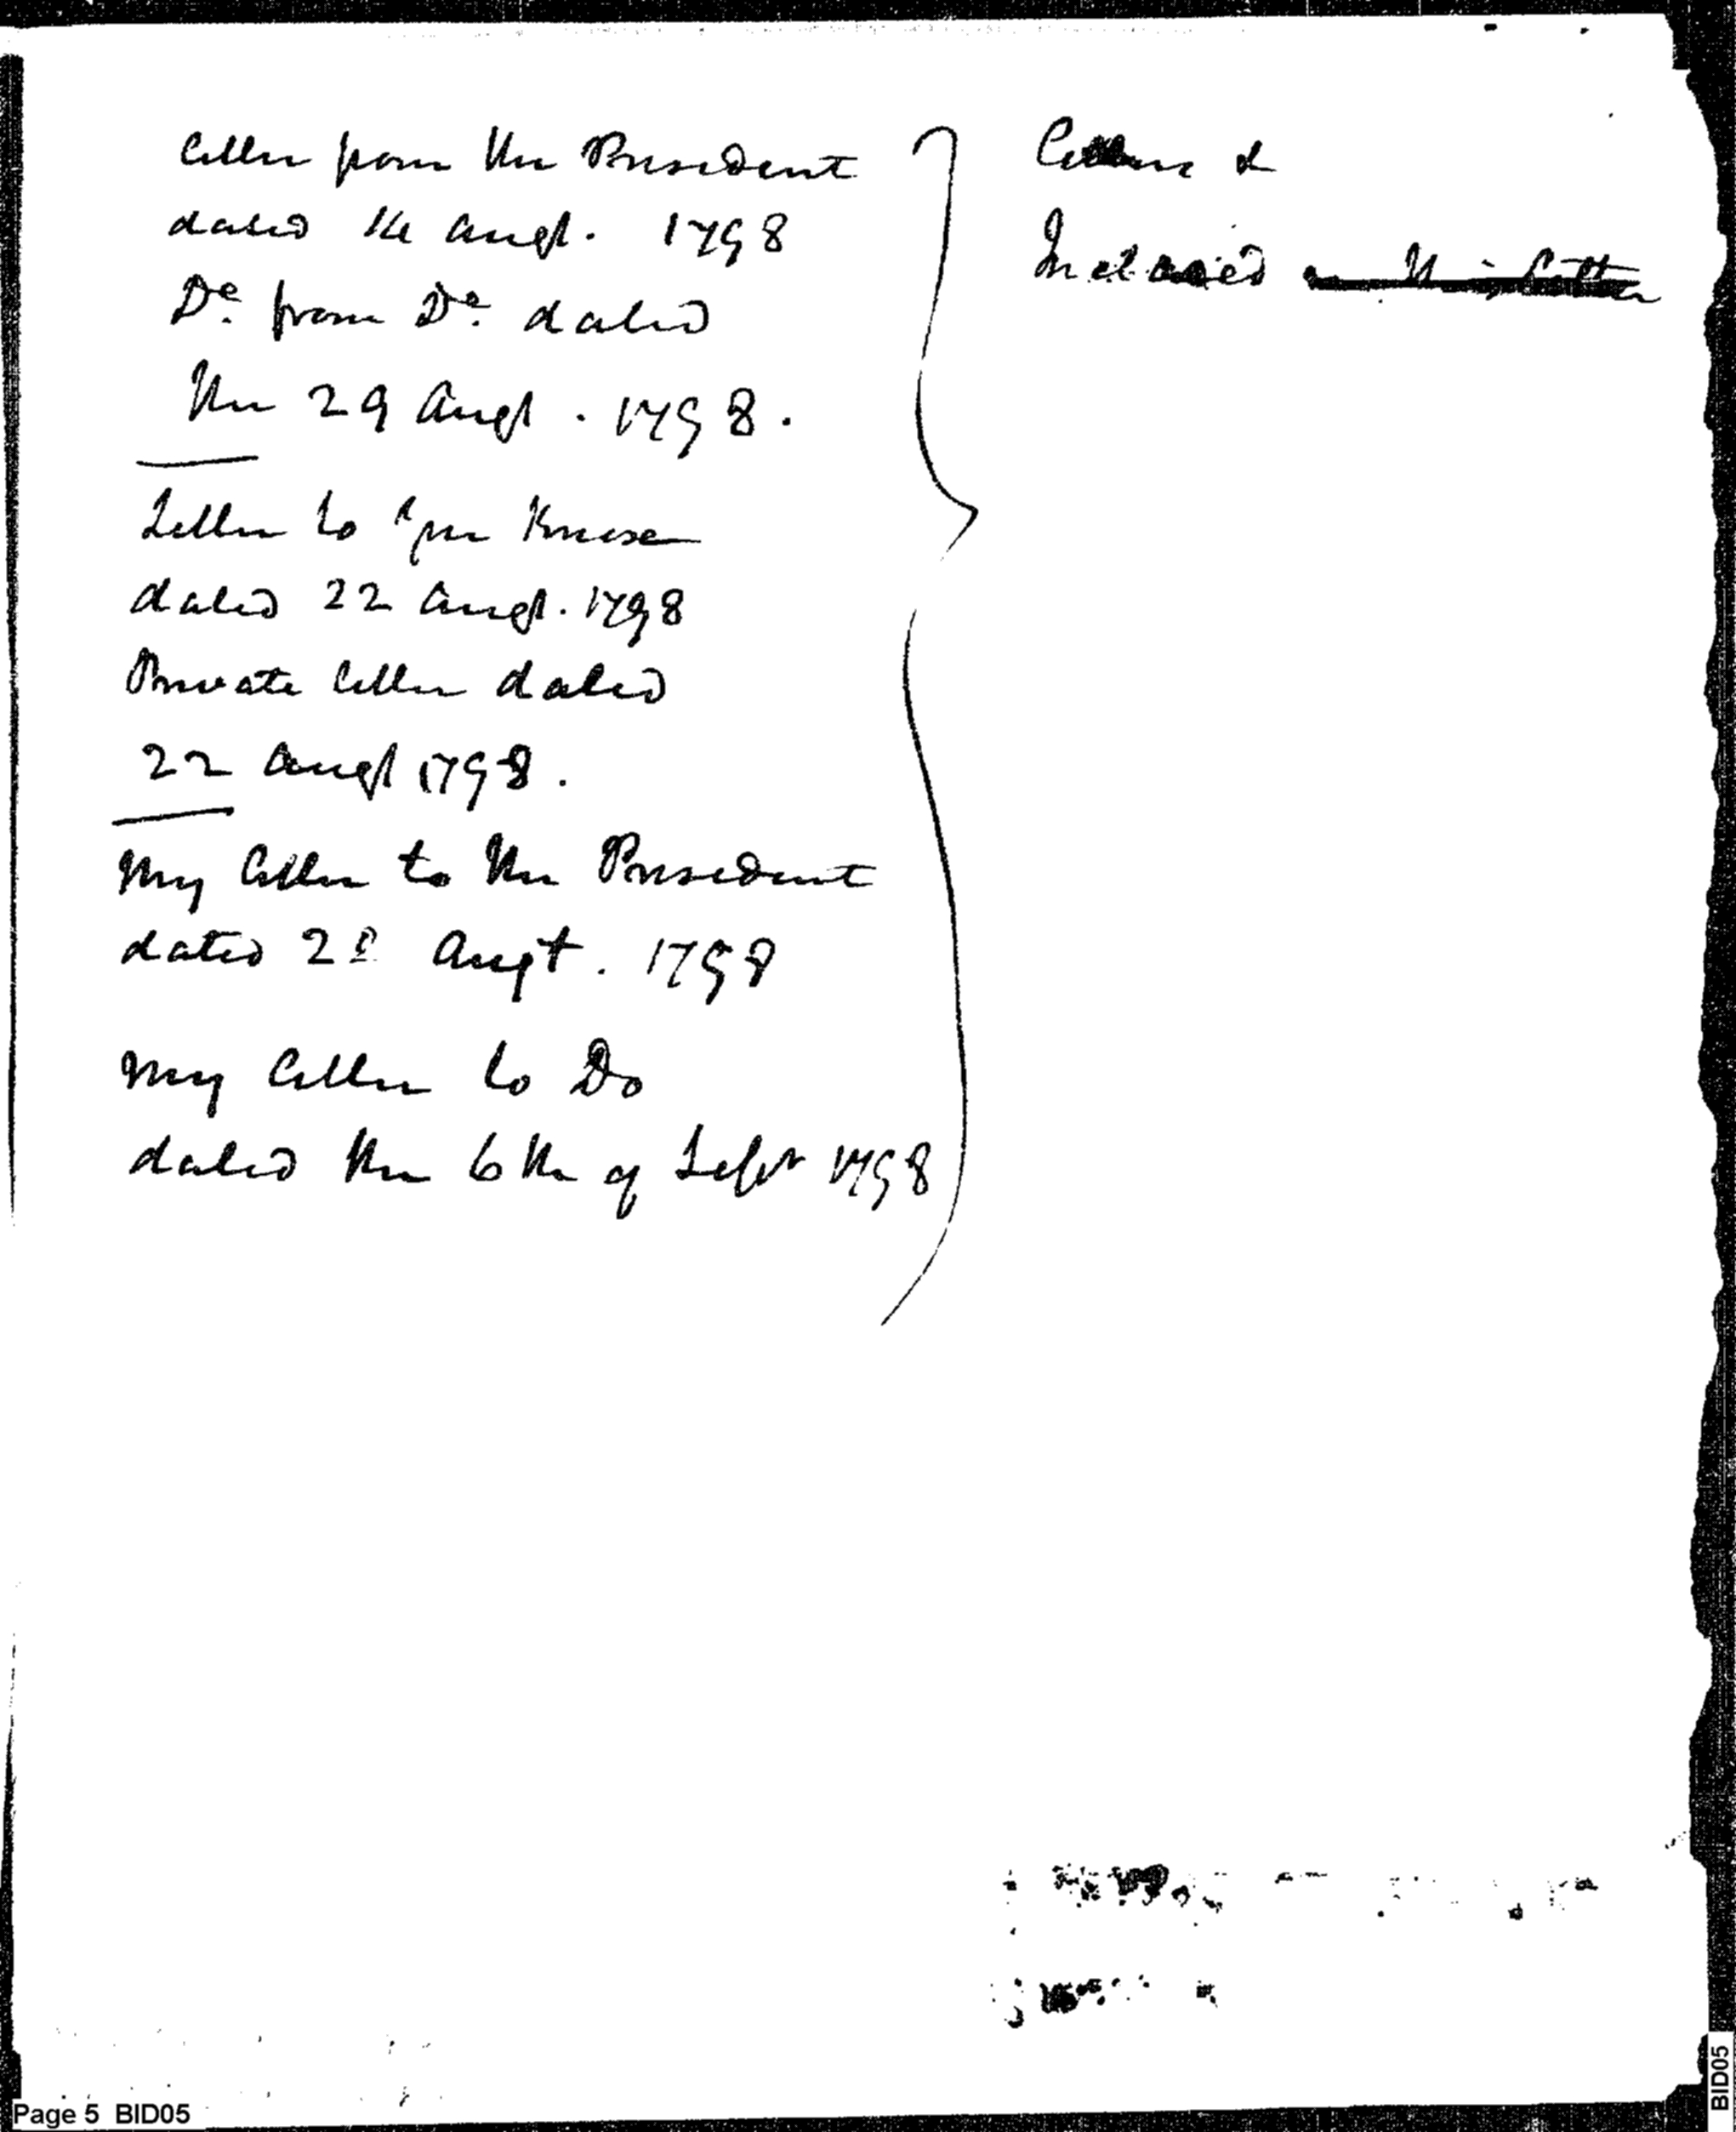 Letter from the President
dated 14 Augt. 1798
Do. from Do. dated
the 29 Augt. 1798.
Letter to Gen Knox
dated 22 Augt. 1798
Private letter dated
22 Augt 1798.
My letter to the President
dated 2 Augt. 1798
My letter to Do
dated the 6th of Sept 1798
Letters &
Inclosed in this letter
Page 5 BID05
BID05